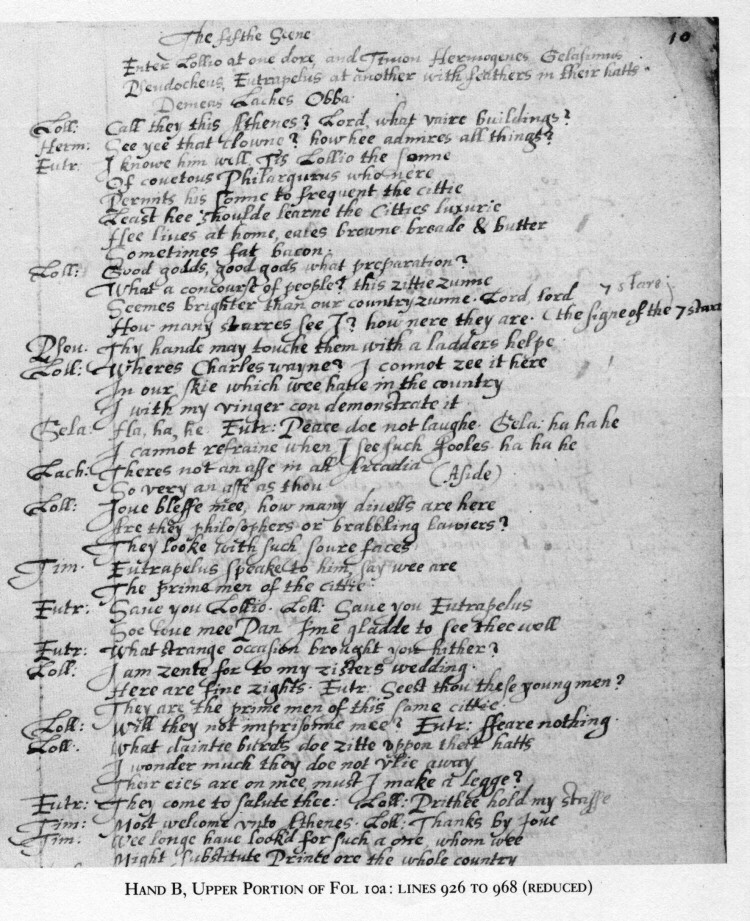 The fifthe Scene
10
Enter Lollio at one dore, and Timon Hermogenes Gelasimus
Pseudocheus, Eutrapelus at another with feathers in their hatts
Demeas Laches Obba
Loll: Call they this Athenes? Lord, what vaire buildings?
Herm: See yee that clowne? how hee admires all things?
Eutr: I knowe him well, Tis Lollio the sonne
Of couetous Philargurus who nere
Permits his sonne to frequent the cittie
Least hee shoulde learne the Citties luxurie
Hee liues at home, eates browne breade & butter
Sometimes fat bacon.
Loll: Good godds, good gods what preparation?
What a concourst of people? this zittie zunne
Seemes brighter than our country zunne. Lord, lord 7 stare:
How many starres see I? how nere they are. (the signe of the 7 starrs
Pseu. Thy hande may touche them with a ladders helpe
Loll: Wheres Charles wayne? I connot zee it here
In our skie which wee haue in the country
I with my vinger con demonstrate it.
Gela: Ha, ha, he Eutr: Peace doe not laughe. Gela: ha ha he
I cannot refraine when I see such fooles. ha ha he
Lach: Theres not an asse in all Arcadia
So very an asse as thou (Aside)
Loll: Ioue blesse mee, how many diuells are here
Are they philosophers or brabbling lawiers?
They looke with such soure faces
Tim. Eutrapelus speake to him, say wee are
The prime men of the cittie.
Eutr: Saue you Lollio. Loll: Saue you Eutrapelus
Soe loue mee Pan I'me gladde to see thee well
Eutr: What strange occasion brought you hither?
Loll: I am zente for to my zisters wedding.
Here are fine zights. Eutr. Seest thou these young men?
They are the prime men of this same cittie.
Loll: Will they not imprisonne mee? Eutr: ffeare nothing.
Loll. What daintie burds doe zitte vppon their hatts
I wonder much they doe not vlie away
Their eies are on mee, must I make a legge?
Eutr: They come to salute thee: Loll: Prithee hold my staffe
Tim: Most welcome vnto Athenes. Loll: Thanks by Ioue
Tim: Wee longe haue look'd for such a one, whom wee
Might substitute Prince ore the whole country
HAND B, UPPER PORTION OF FOL 10a: LINES 926 TO 968 (REDUCED)